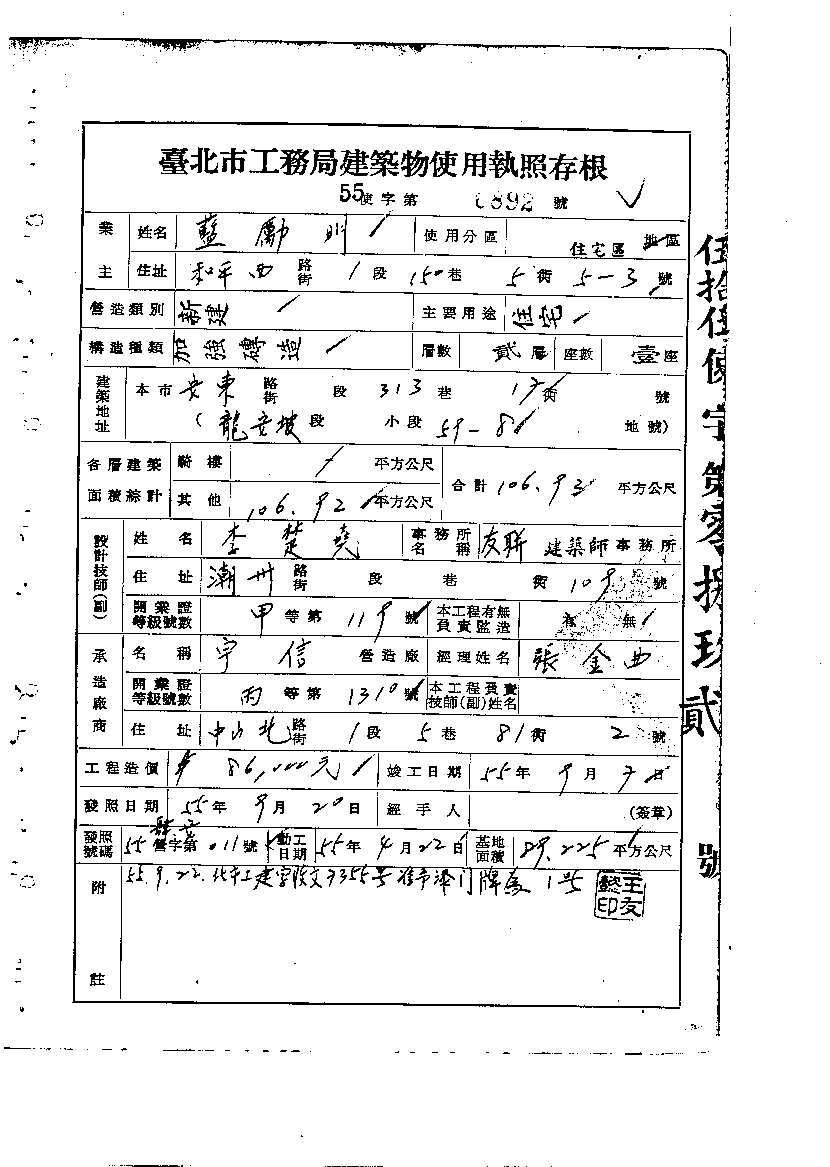 臺北市工務局建築物使用執照存根
55使字第 0892 號
業主 姓名 藍勵川 使用分區 住宅區 地區
住址 和平西 路街 1段 150巷 5街 5-3號
營造類別 新建 主要用途 住宅
構造種類 加強磚造 層數 貳層 座數 壹座
建築地址 本市 安東 路街 段 313巷 街 號
(龍安坡段 小段 59-8 地號)
各層建築面積綜計 騎樓 平方公尺 合計 106.92 平方公尺
其他 106.92 平方公尺
設計技師(副) 姓名 李楚堯 事務所名稱 友聯 建築師事務所
住址 潮州 路街 段 巷 街 109號
開業證等級號數 甲等第 119號 本工程有無負責監造 有 無
承造廠商 名稱 宇信 營造廠 經理姓名 張金
開業證等級號數 丙等第 1310號 本工程負責技師(副)姓名
住址 中山北 路街 1段 5巷 81街 2號
工程造價 86,000元 竣工日期 55年 9月 7日
發照日期 55年 9月 20日 經手人 (簽章)
發照號碼 55 營字第 011號 動工日期 55年 4月 22日 基地面積 89.225 平方公尺
附註 55.9.22. 北市工建字 355号 門牌為 1号
王友懿印
伍拾伍使字第零捌玖貳號